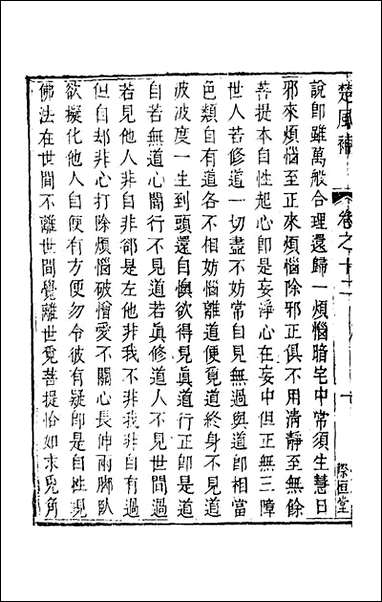 楚風補 卷之十二
際恒堂
說即雖萬般合理還歸一煩惱暗宅中常須生慧日
邪來煩惱至正來煩惱除邪正俱不用清靜至無餘
菩提本自性起心即是妄淨心在妄中但正無三障
世人若修道一切盡不妨常自見無過與道即相當
色類自有道各不相妨惱離道便覓道終身不見道
波波度一生到頭還自懊欲得見眞道行正即是道
自若無道心闇行不見道若眞修道人不見世間過
若見他人非自非卻是左他非我不非我非自有過
但自却非心打除煩惱破憎愛不關心長伸兩脚臥
欲擬化他人自便有方便勿令彼有疑即是自性現
佛法在世間不離世間覺離世覓菩提恰如求兎角